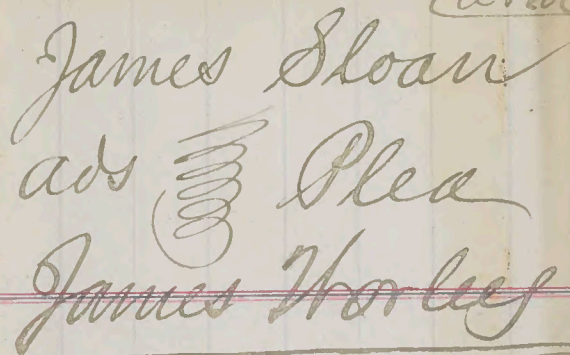 James Sloan
ads Plea
James Worley